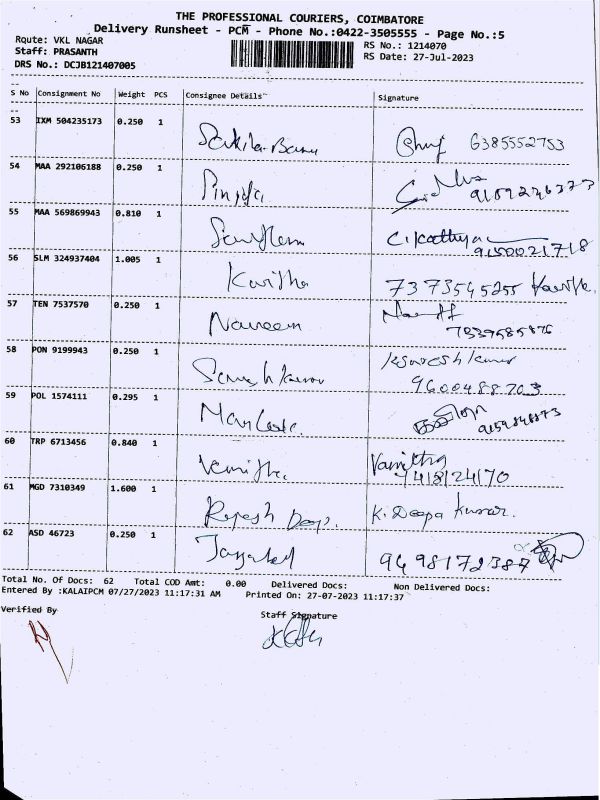 THE PROFESSIONAL COURIERS, COIMBATORE
Delivery Runsheet - PCM - Phone No.:0422-3505555 - Page No.:5
Route: VKL NAGAR RS No.: 1214070
Staff: PRASANTH RS Date: 27-Jul-2023
DRS No.: DCJB121407005
S No Consignment No Weight PCS Consignee Details Signature
53 IXM 504235173 0.250 1
6385552753
54 MAA 292106188 0.250 1
55 MAA 569869943 0.810 1
C. Kathya
9150021718
56 SLM 324937404 1.005 1 Kavitha
7373545255 Kavitha
57 TEN 7537570 0.250 1 Naveen
58 PON 9199943 0.250 1
Sureshkumar
9600488703
59 POL 1574111 0.295 1
60 TRP 6713456 0.840 1 Vanitha
Vanitha
7418124170
61 MGD 7310349 1.600 1 Rajesh Deepa
K. Deepa Kumar.
62 ASD 46723 0.250 1
9498172387
Total No. Of Docs: 62 Total COD Amt: 0.00 Delivered Docs: Non Delivered Docs:
Entered By :KALAIPCM 07/27/2023 11:17:31 AM Printed On: 27-07-2023 11:17:37
Verified By Staff Signature